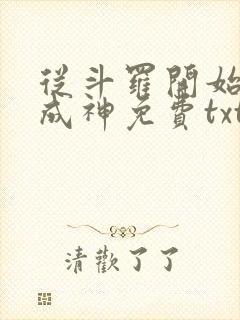 從斗羅開始
成神免費txt
清歡了了